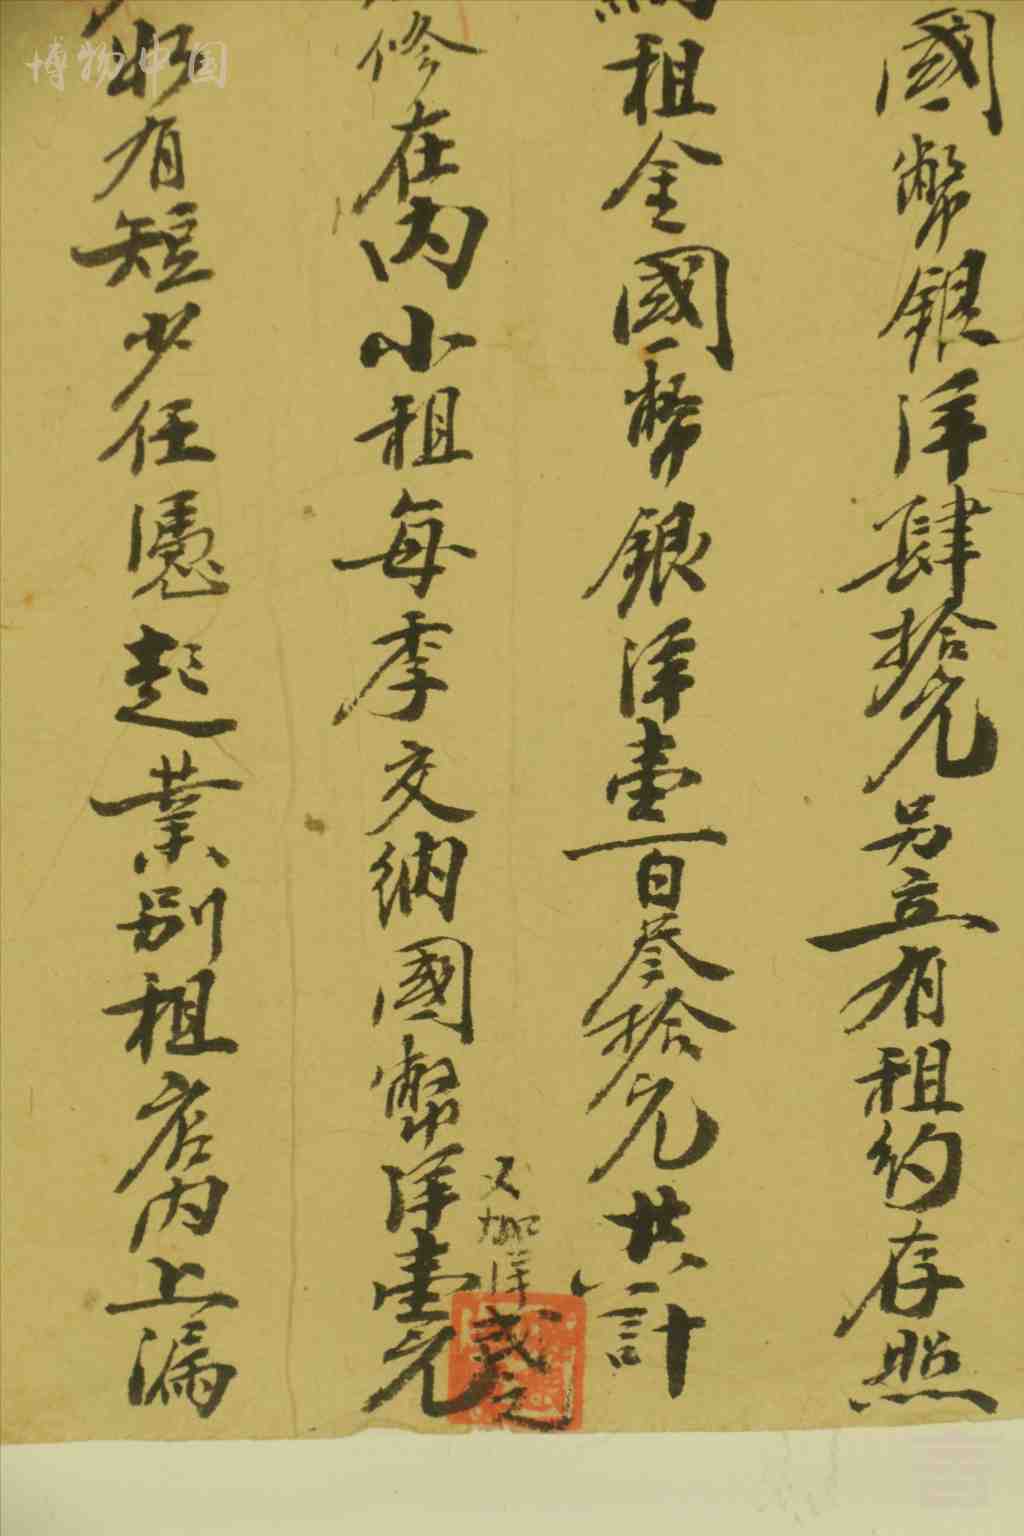 國幣銀洋肆拾元另立有租約存照
租金國幣銀洋壹百叁拾元共計
修在内小租每季交納國幣洋壹元
又加洋弍元
如有短少任憑起業別租店内上漏
博物中国